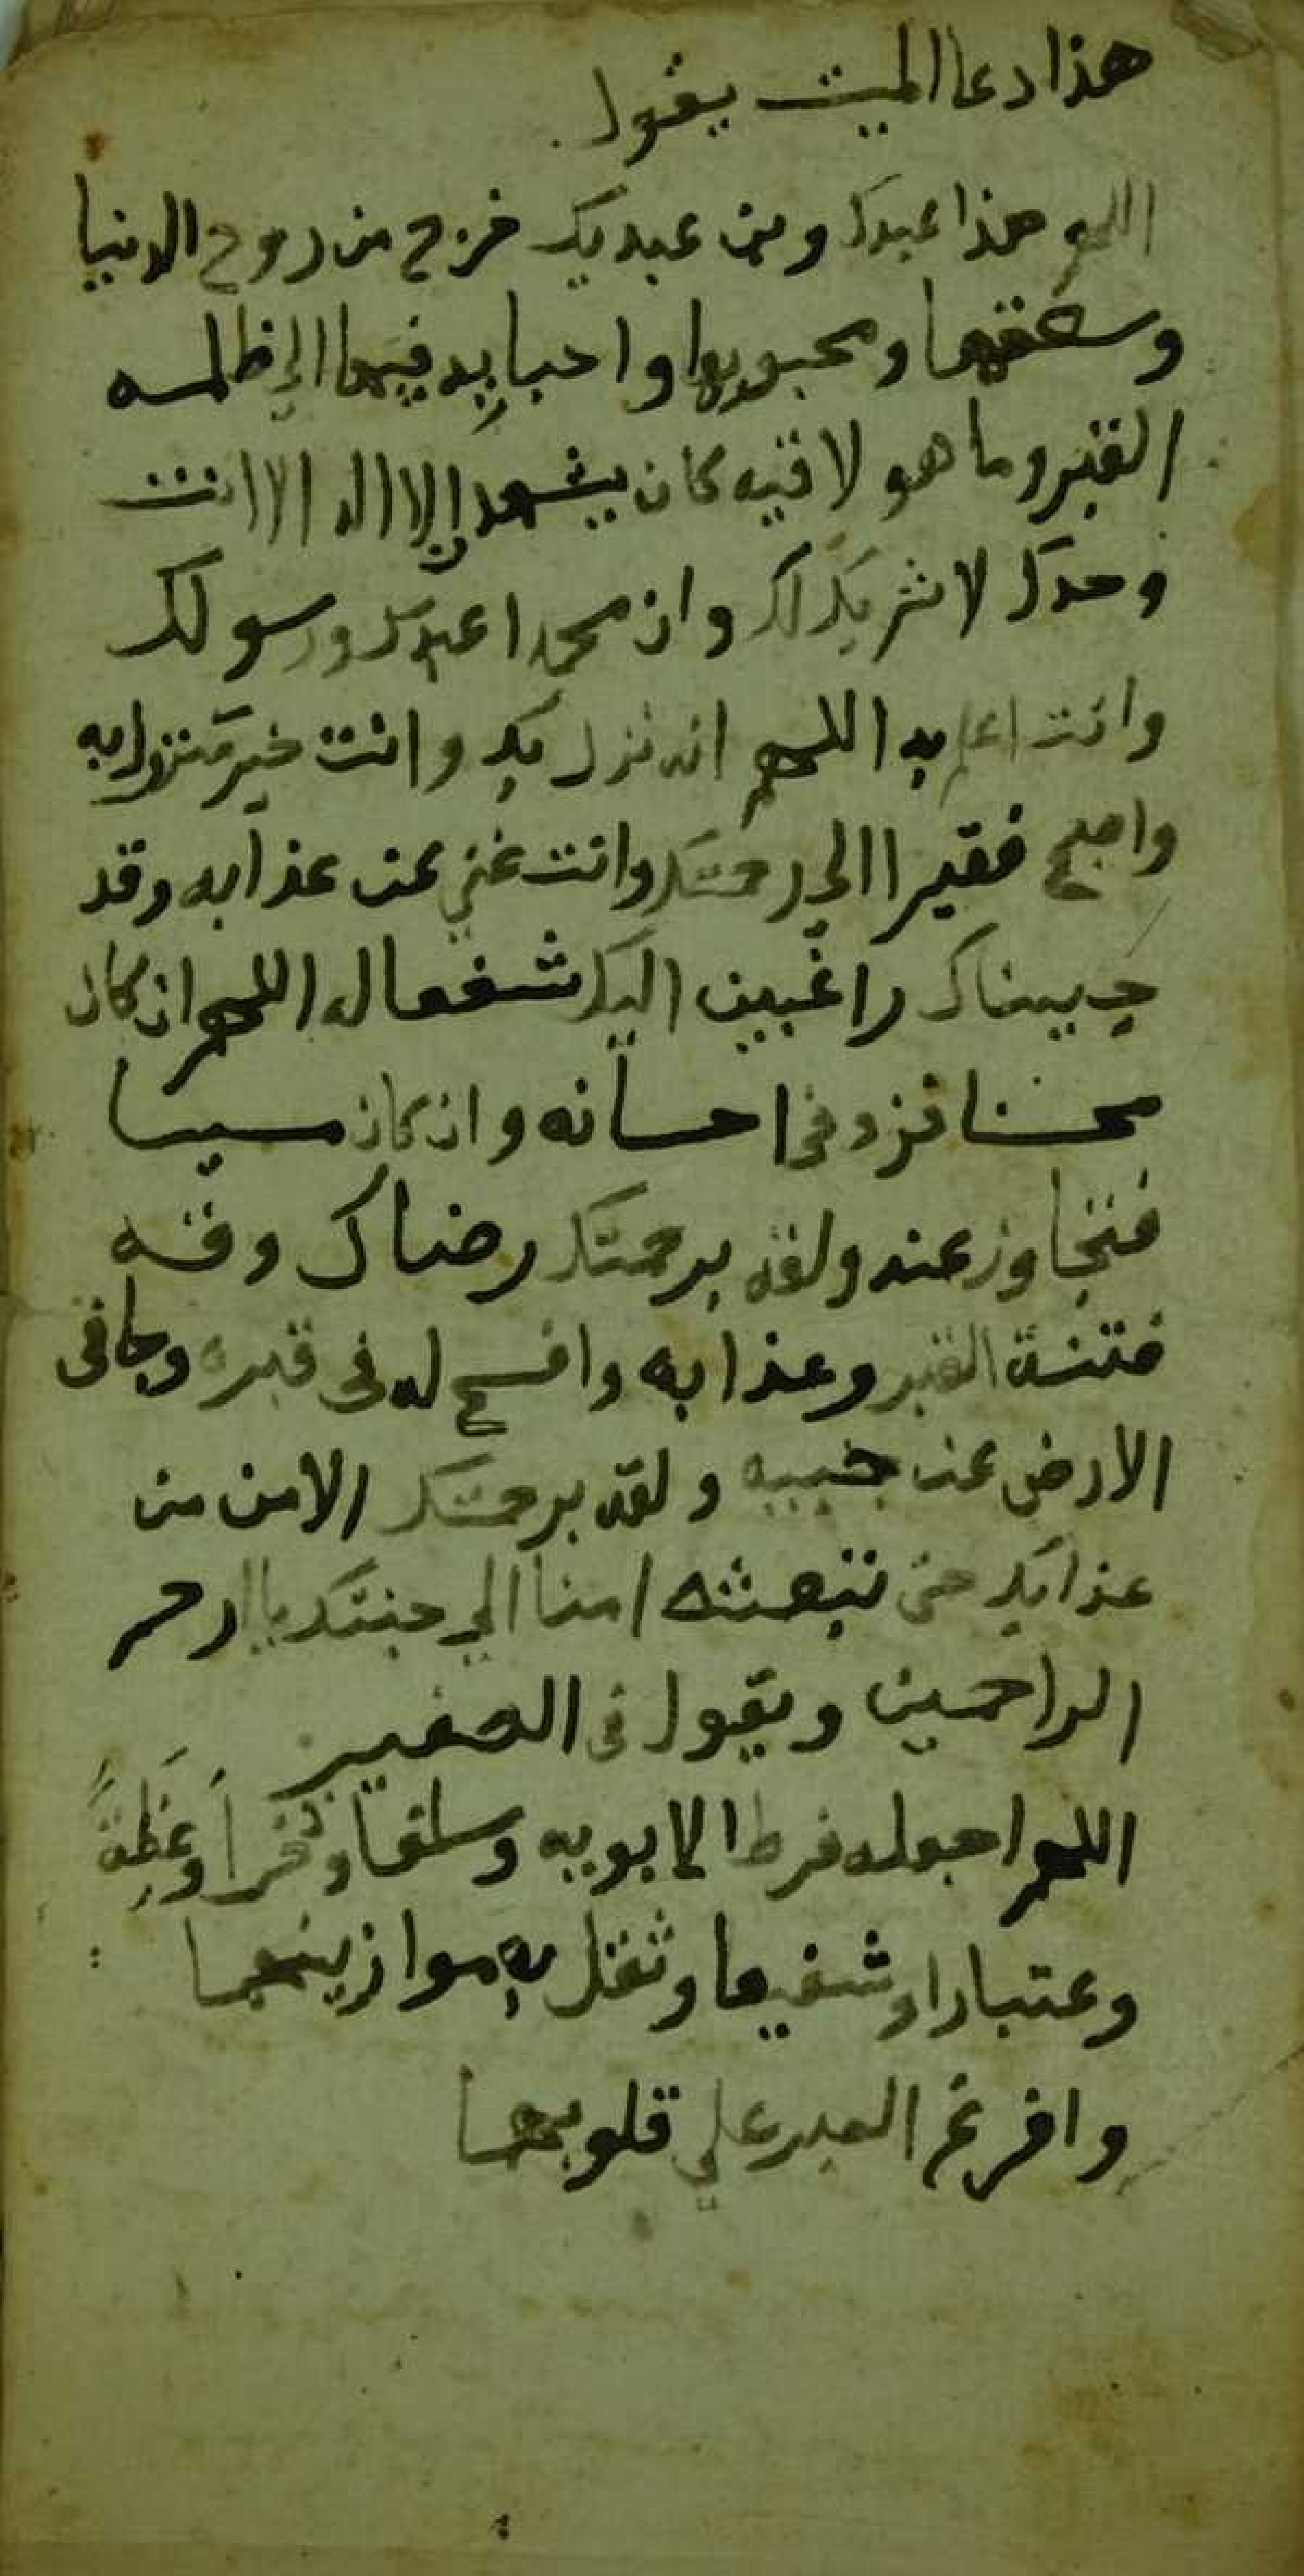 هذا دعا الميت يقول
اللهم هذا عبدك وبن عبديك خرج من روح الدنيا
وسعتها ومحبوبها واحبايه فيها الي ظلمه
القبر وما هو لاقيه كان يشهد ان لا اله الا انت
وحدك لا شريك لك وان محمدا عبدك ورسولك
وانت اعلم به اللهم انه نزل بك وانت خير منزول به
واصبح فقيرا الي رحمتك وانت غني عن عذابه وقد
جيناك راغبين اليك شفعا له اللهم ان كان
محسنا فزد في احسانه وان كان مسيا
فتجاوز عنه ولقه برحمتك رضاك وقه
فتنة القبر وعذابه وافسح له في قبره وجافى
الارض عن جنبيه ولقه برحمتك الامن من
عذابك حتى تبعثه امنا الي جنتك يا ارحم
الراحمين ويقول في الصغير
اللهم اجعله فرطا لابويه وسلفا وذخرا وعظة
وعتبارا وشفيعا وثقل به موازينهما
وافرغ الصبر علي قلوبهما